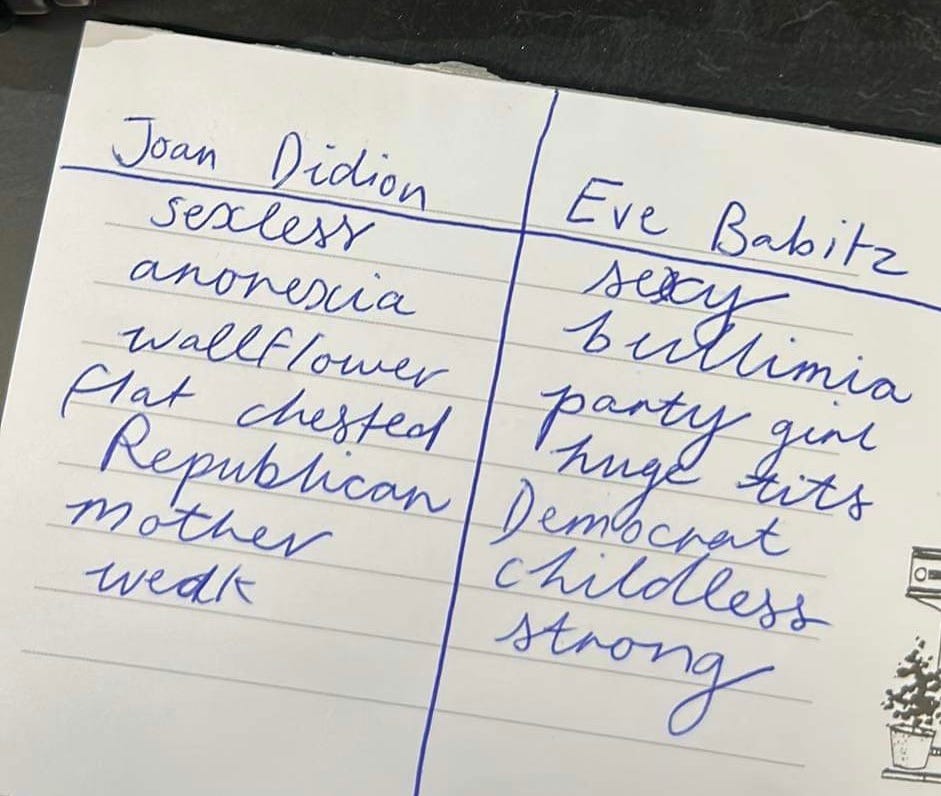 Joan Didion
sexless
anorexia
wallflower
flat chested
Republican
mother
weak
Eve Babitz
sexy
bullimia
party girl
huge tits
Democrat
childless
strong